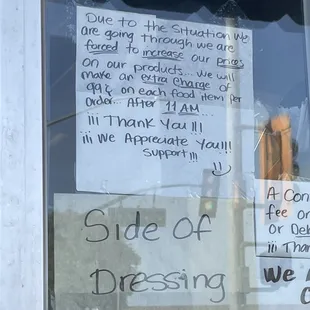 Due to the Situation We
are going through we are
forced to increase our prices
on our products... we will
make an extra charge of
99¢ on each food item per
order... After 11 AM...
¡¡¡ Thank You !!!
¡¡¡ We Appreciate You!!!
Support!!!
Side Of
Dressing
A Con
fee or
or Deb
¡¡¡ Than
We